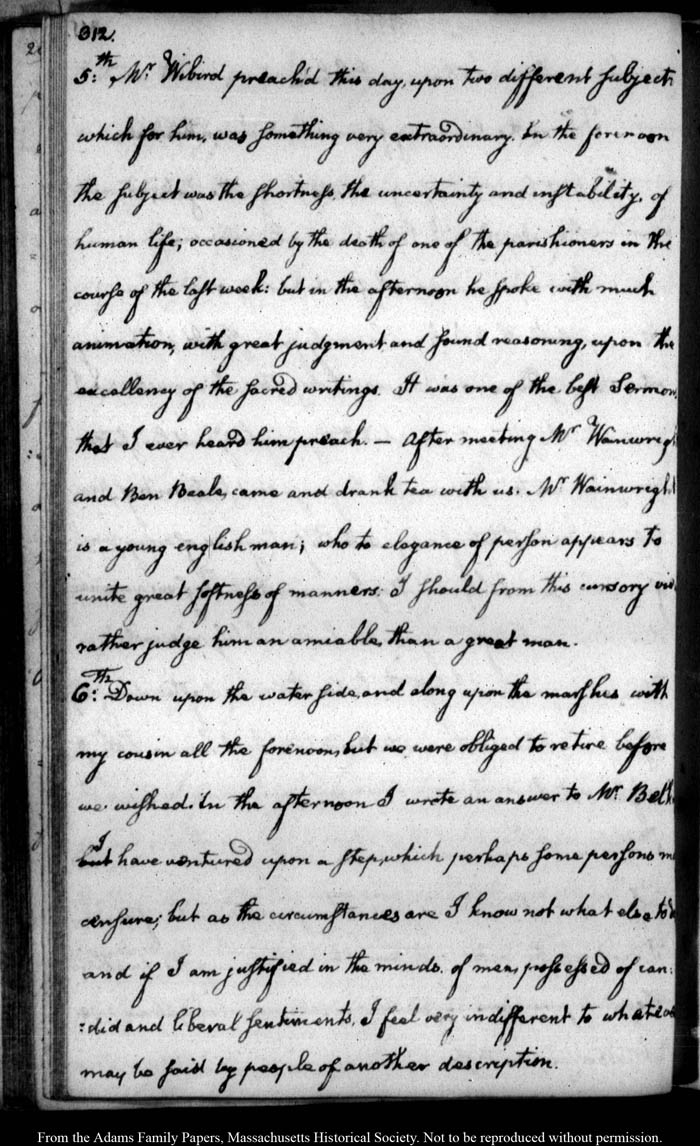 312.
5:th Mr Wibird preach'd this day, upon two different subject
which for him, was something very extraordinary. In the forenoon
the subject was the shortness, the uncertainty and instability, of
human life; occasioned by the death of one of the parishioners in the
course of the last week: but in the afternoon he spoke with much
animation, with great judgment and sound reasoning, upon the
excellency of the sacred writings. It was one of the best Sermon
that I ever heard him preach. — After meeting Mr Wainwrigh
and Ben Beale, came and drank tea with us. Mr Wainwright
is a young english man; who to elegance of person appears to
unite great softness of manners: I should from this cursory vie
rather judge him an amiable, than a great man.
6:th Down upon the water side, and along upon the marshes with
my cousin all the forenoon, but we were obliged to retire before
we wished. In the afternoon I wrote an answer to Mr. Belk
I
but have ventured upon a step, which perhaps some persons m
censure; but as the circumstances are I know not what else to d
and if I am justified in the minds of men, possessed of can:
:did and liberal sentiments, I feel very indifferent to whatev
may be said by people of another description.
From the Adams Family Papers, Massachusetts Historical Society. Not to be reproduced without permission.